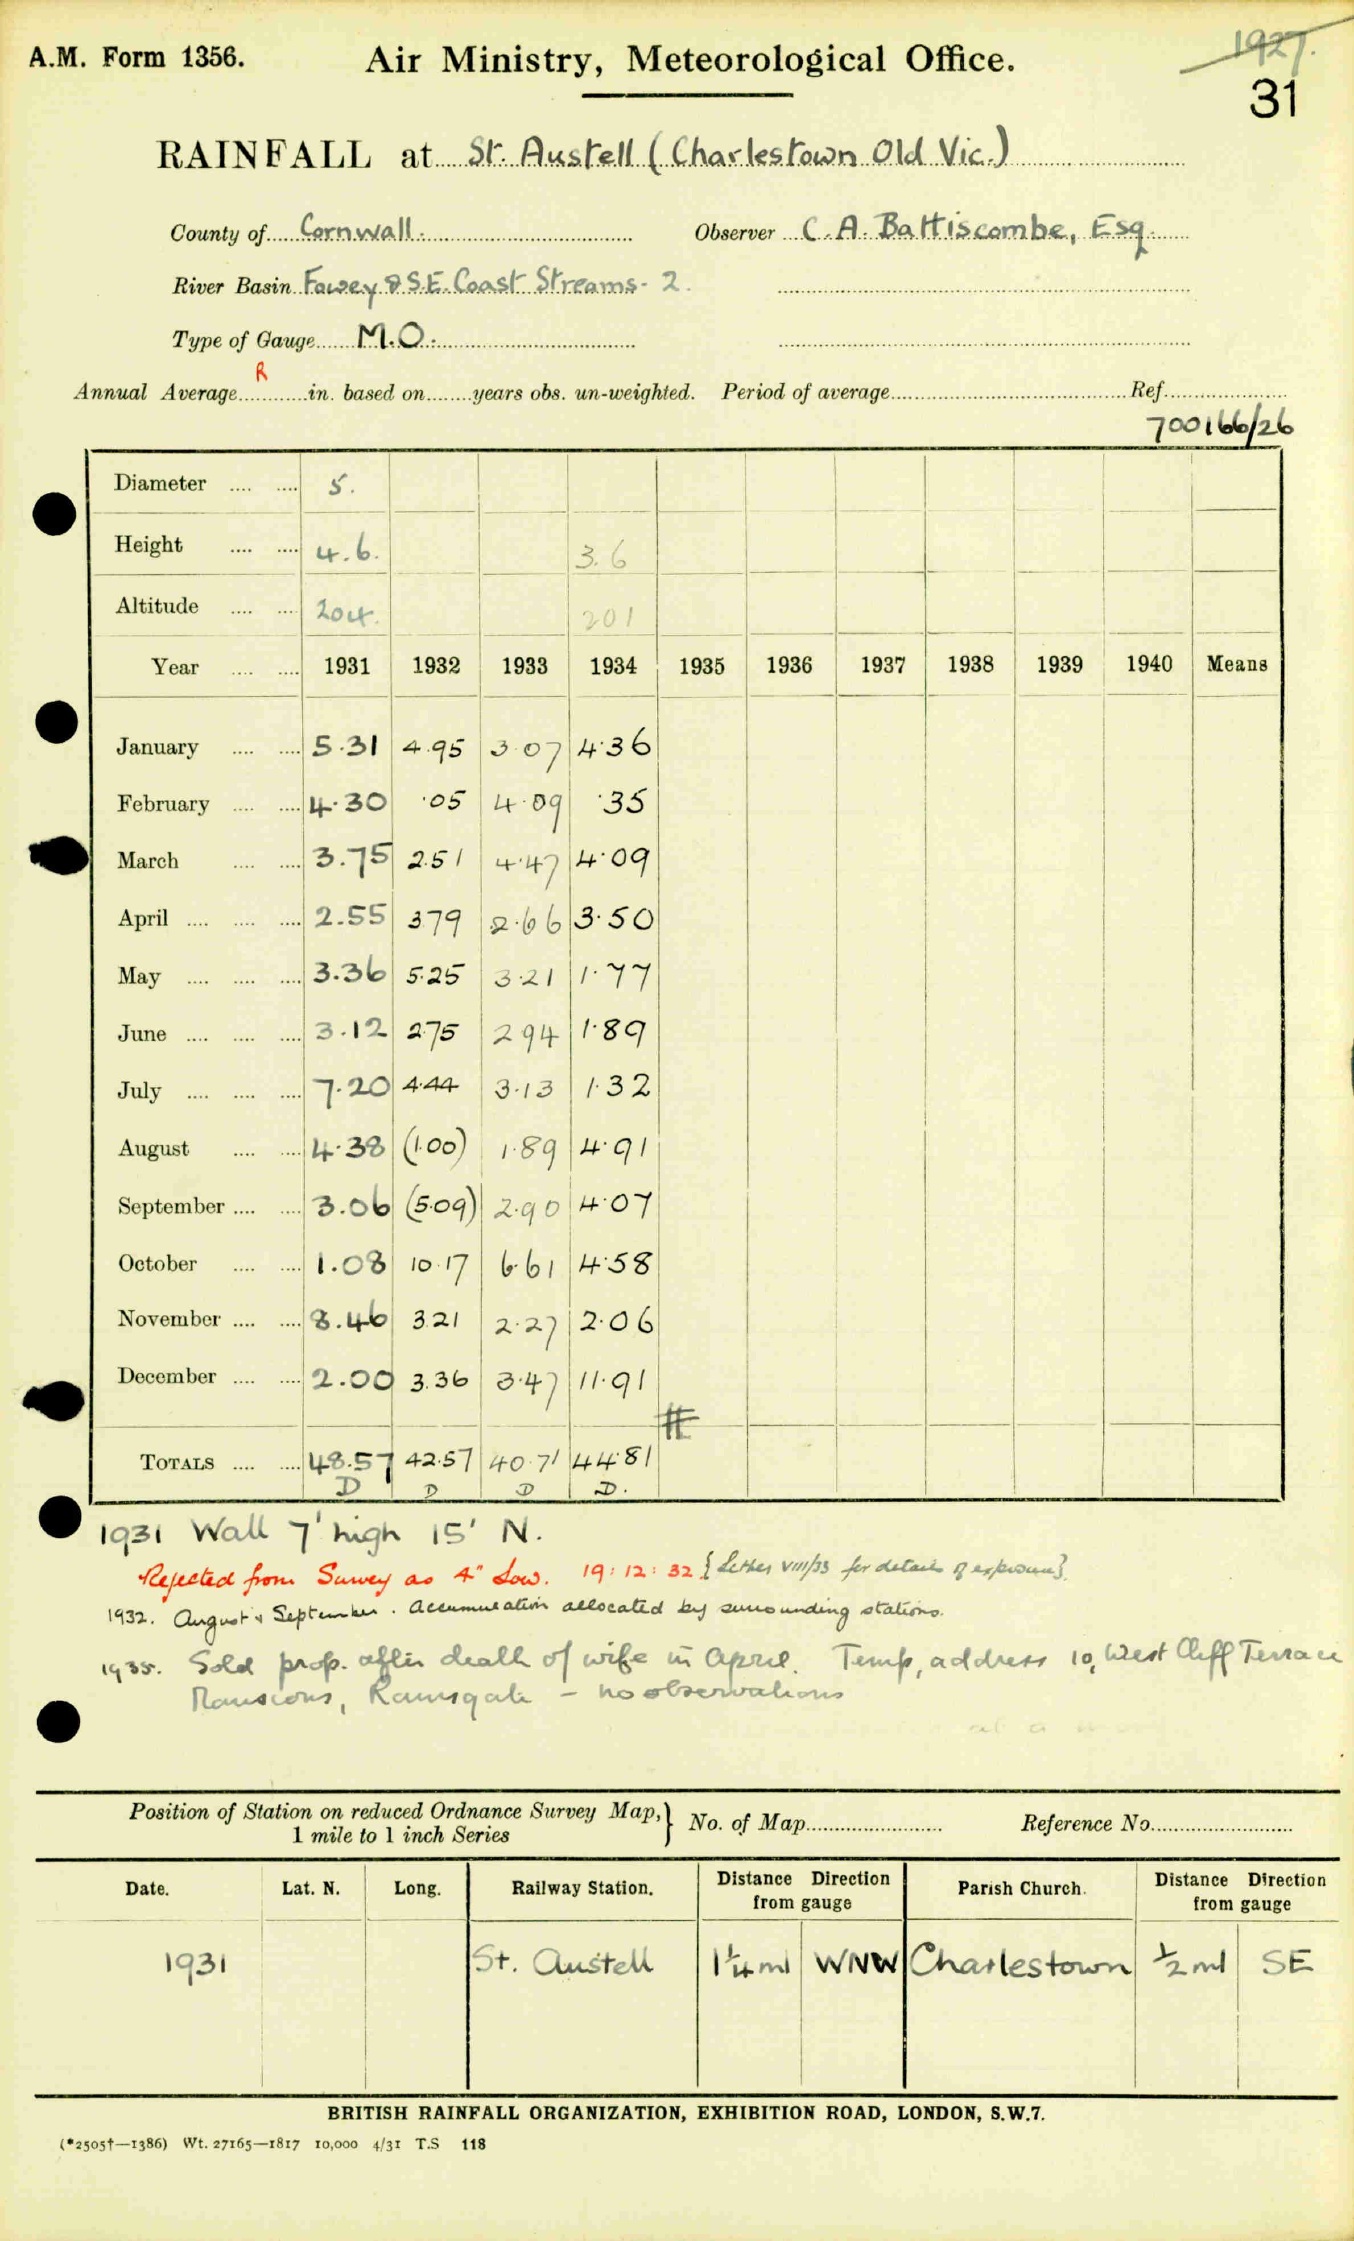 1927.
A.M. Form 1356. Air Ministry, Meteorological Office.
31
RAINFALL at St. Austell (Charlestown Old Vic.)
County of Cornwall. Observer C. A. Battiscombe, Esq.
River Basin Fowey & S.E. Coast Streams - 2.
Type of Gauge M.O.
R
Annual Average in. based on years obs. un-weighted. Period of average Ref.
700166/26
Diameter 5.
Height 4.6. 3.6
Altitude 204. 201
Year 1931 1932 1933 1934 1935 1936 1937 1938 1939 1940 Means
January 5.31 4.95 3.07 4.36
February 4.30 .05 4.09 .35
March 3.75 2.51 4.47 4.09
April 2.55 3.79 2.66 3.50
May 3.36 5.25 3.21 1.77
June 3.12 2.75 2.94 1.89
July 7.20 4.44 3.13 1.32
August 4.38 (1.00) 1.89 4.91
September 3.06 (5.09) 2.90 4.07
October 1.08 10.17 6.61 4.58
November 8.46 3.21 2.27 2.06
December 2.00 3.36 3.47 11.91
TOTALS 48.57 42.57 40.71 44.81
D D D D.
1931 Wall 7' high 15' N.
Rejected from Survey as 4" Low. 19:12:32 {Letter VIII/33 for details of exposure}
1932. August & September. Accumulation allocated by surrounding stations.
1935. Sold prop. after death of wife in April. Temp, address 10, West Cliff Terrace
Mansions, Ramsgate - no observations
Position of Station on reduced Ordnance Survey Map, } No. of Map Reference No.
1 mile to 1 inch Series
Date. Lat. N. Long. Railway Station. Distance Direction from gauge Parish Church. Distance Direction from gauge
1931 St. Austell 1¼ ml WNW Charlestown ½ ml SE
BRITISH RAINFALL ORGANIZATION, EXHIBITION ROAD, LONDON, S.W.7.
(*2505†—1386) Wt. 27165—1817 10,000 4/31 T.S 118